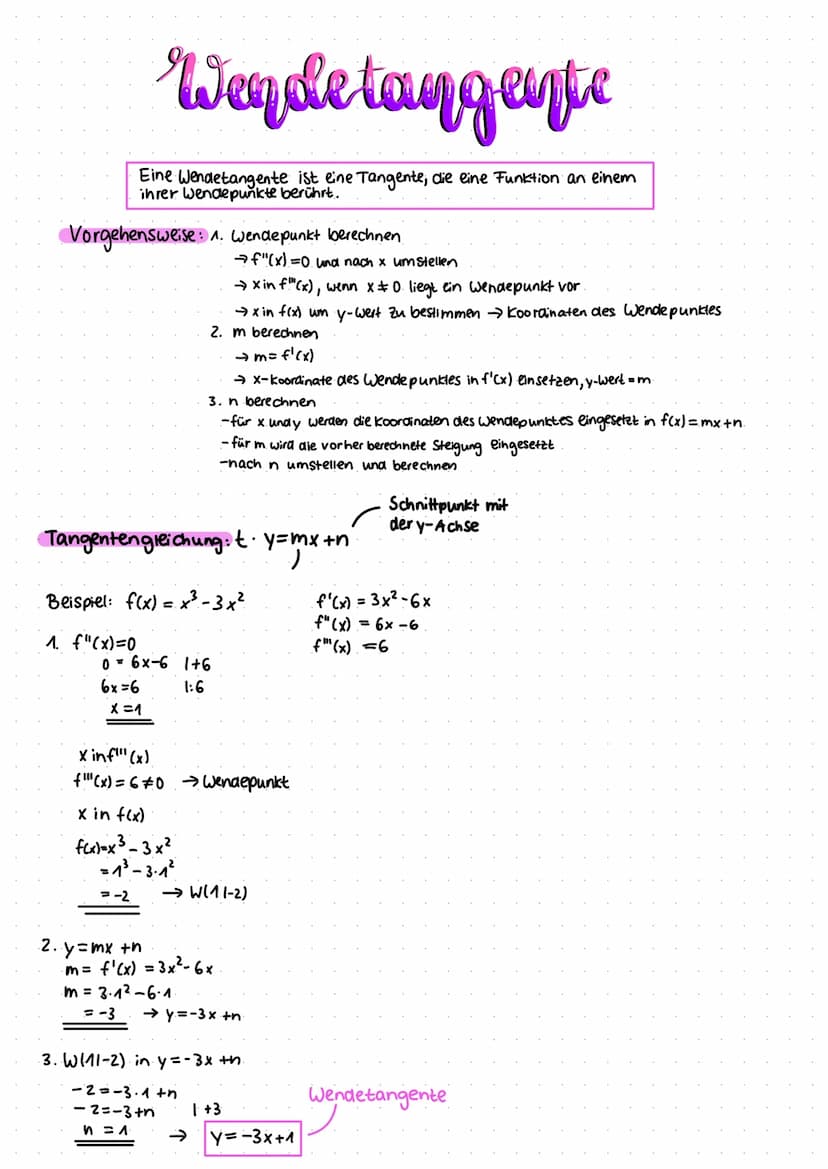 Wendetangente
Eine Wendetangente ist eine Tangente, die eine Funktion an einem
ihrer Wendepunkte berührt.
Vorgehensweise: 1. Wendepunkt berechnen
→ f''(x) = 0 und nach x umstellen
→ x in f'''(x), wenn x ≠ 0 liegt ein Wendepunkt vor
→ x in f(x) um y-Wert zu bestimmen → Koordinaten des Wendepunktes
2. m berechnen
→ m = f'(x)
→ x-Koordinate des Wendepunktes in f'(x) einsetzen, y-Wert = m
3. n berechnen
-für x und y werden die Koordinaten des Wendepunktes eingesetzt in f(x) = mx+n
-für m wird die vorher berechnete Steigung eingesetzt
-nach n umstellen und berechnen
Schnittpunkt mit
der y-Achse
Tangentengleichung: t: y=mx+n
Beispiel: f(x) = x³ - 3x²
f'(x) = 3x² - 6x
f''(x) = 6x - 6
f'''(x) = 6
1. f''(x)=0
0 = 6x-6 |+6
6x = 6 |:6
x = 1
x in f'''(x)
f'''(x) = 6 ≠ 0 → Wendepunkt
x in f(x)
f(x)=x³ - 3x²
= 1³ - 3·1²
= -2 → W(1|-2)
2. y=mx+n
m = f'(x) = 3x² - 6x
m = 3·1² - 6·1
= -3 → y=-3x+n
3. W(1|-2) in y=-3x+n
-2=-3·1+n
-2=-3+n |+3
n = 1 → y=-3x+1
Wendetangente